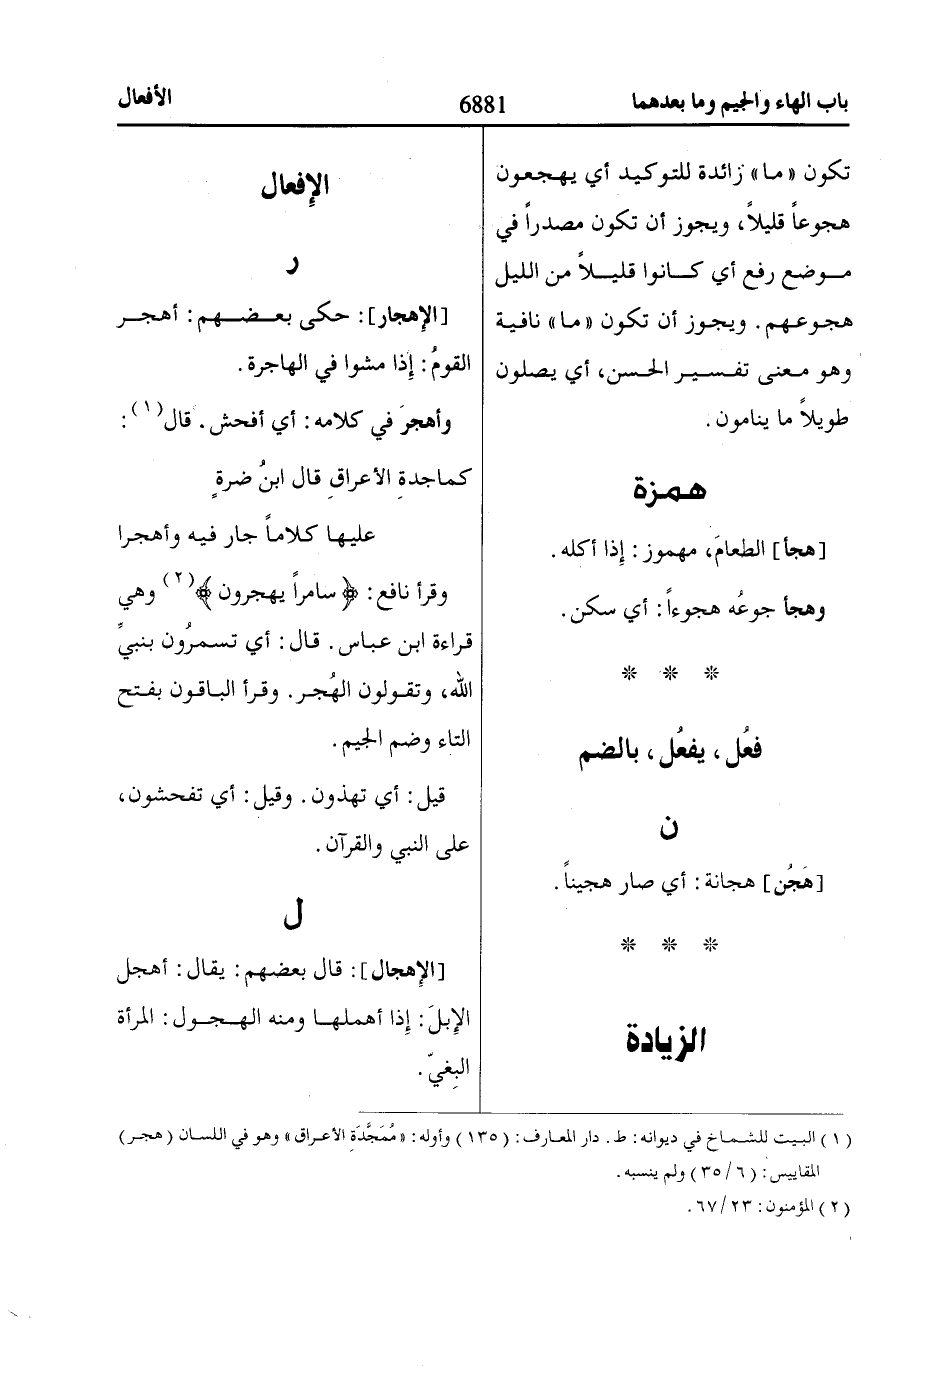 باب الهاء والجيم وما بعدهما
6881
الأفعال
تكون «ما» زائدة للتوكيد أي يهجعون
هجوعاً قليلاً، ويجوز أن تكون مصدراً في
موضع رفع أي كانوا قليلاً من الليل
هجوعهم. ويجوز أن تكون «ما» نافية
وهو معنى تفسير الحسن، أي يصلون
طويلاً ما ينامون.
همزة
[هجأ] الطعامَ، مهموز: إذا أكله.
وهجأ جوعُه هجوءاً: أي سكن.
* * *
فعُل، يفعُل، بالضم
ن
[هَجُن] هجانة: أي صار هجيناً.
* * *
الزيادة
الإفعال
ر
[الإهجار]: حكى بعضهم: أهجر
القومُ: إذا مشوا في الهاجرة.
وأهجرَ في كلامه: أي أفحش. قال(١):
كماجدةِ الأعراقِ قال ابنُ ضرةٍ
عليها كلاماً جار فيه وأهجرا
وقرأ نافع: ﴿سامراً يهجرون﴾(٢) وهي
قراءة ابن عباس. قال: أي تسمرُون بنبيِّ
الله، وتقولون الهُجر. وقرأ الباقون بفتح
التاء وضم الجيم.
قيل: أي تهذون. وقيل: أي تفحشون،
على النبي والقرآن.
ل
[الإهجال]: قال بعضهم: يقال: أهجل
الإبلَ: إذا أهملها ومنه الهجول: المرأة
البغيّ.
(١) البيت للشماخ في ديوانه: ط. دار المعارف: (١٣٥) وأوله: «مُمَجَّدَة الأعراق» وهو في اللسان (هجر)
المقاييس: (٣٥/٦) ولم ينسبه.
(٢) المؤمنون: ٦٧/٢٣.